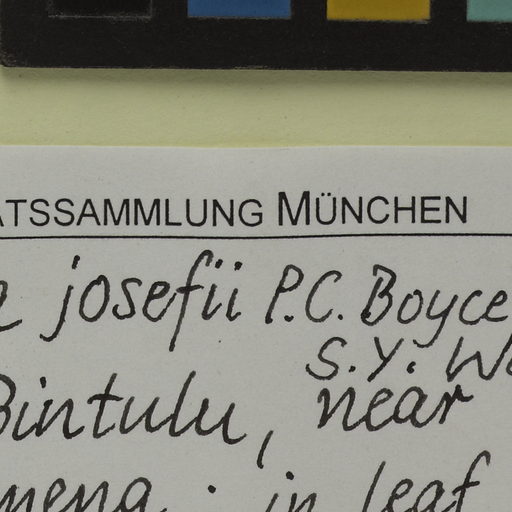 ATSSAMMLUNG MÜNCHEN
josefii P.C. Boyce
S.Y.
Bintulu, near
in leaf